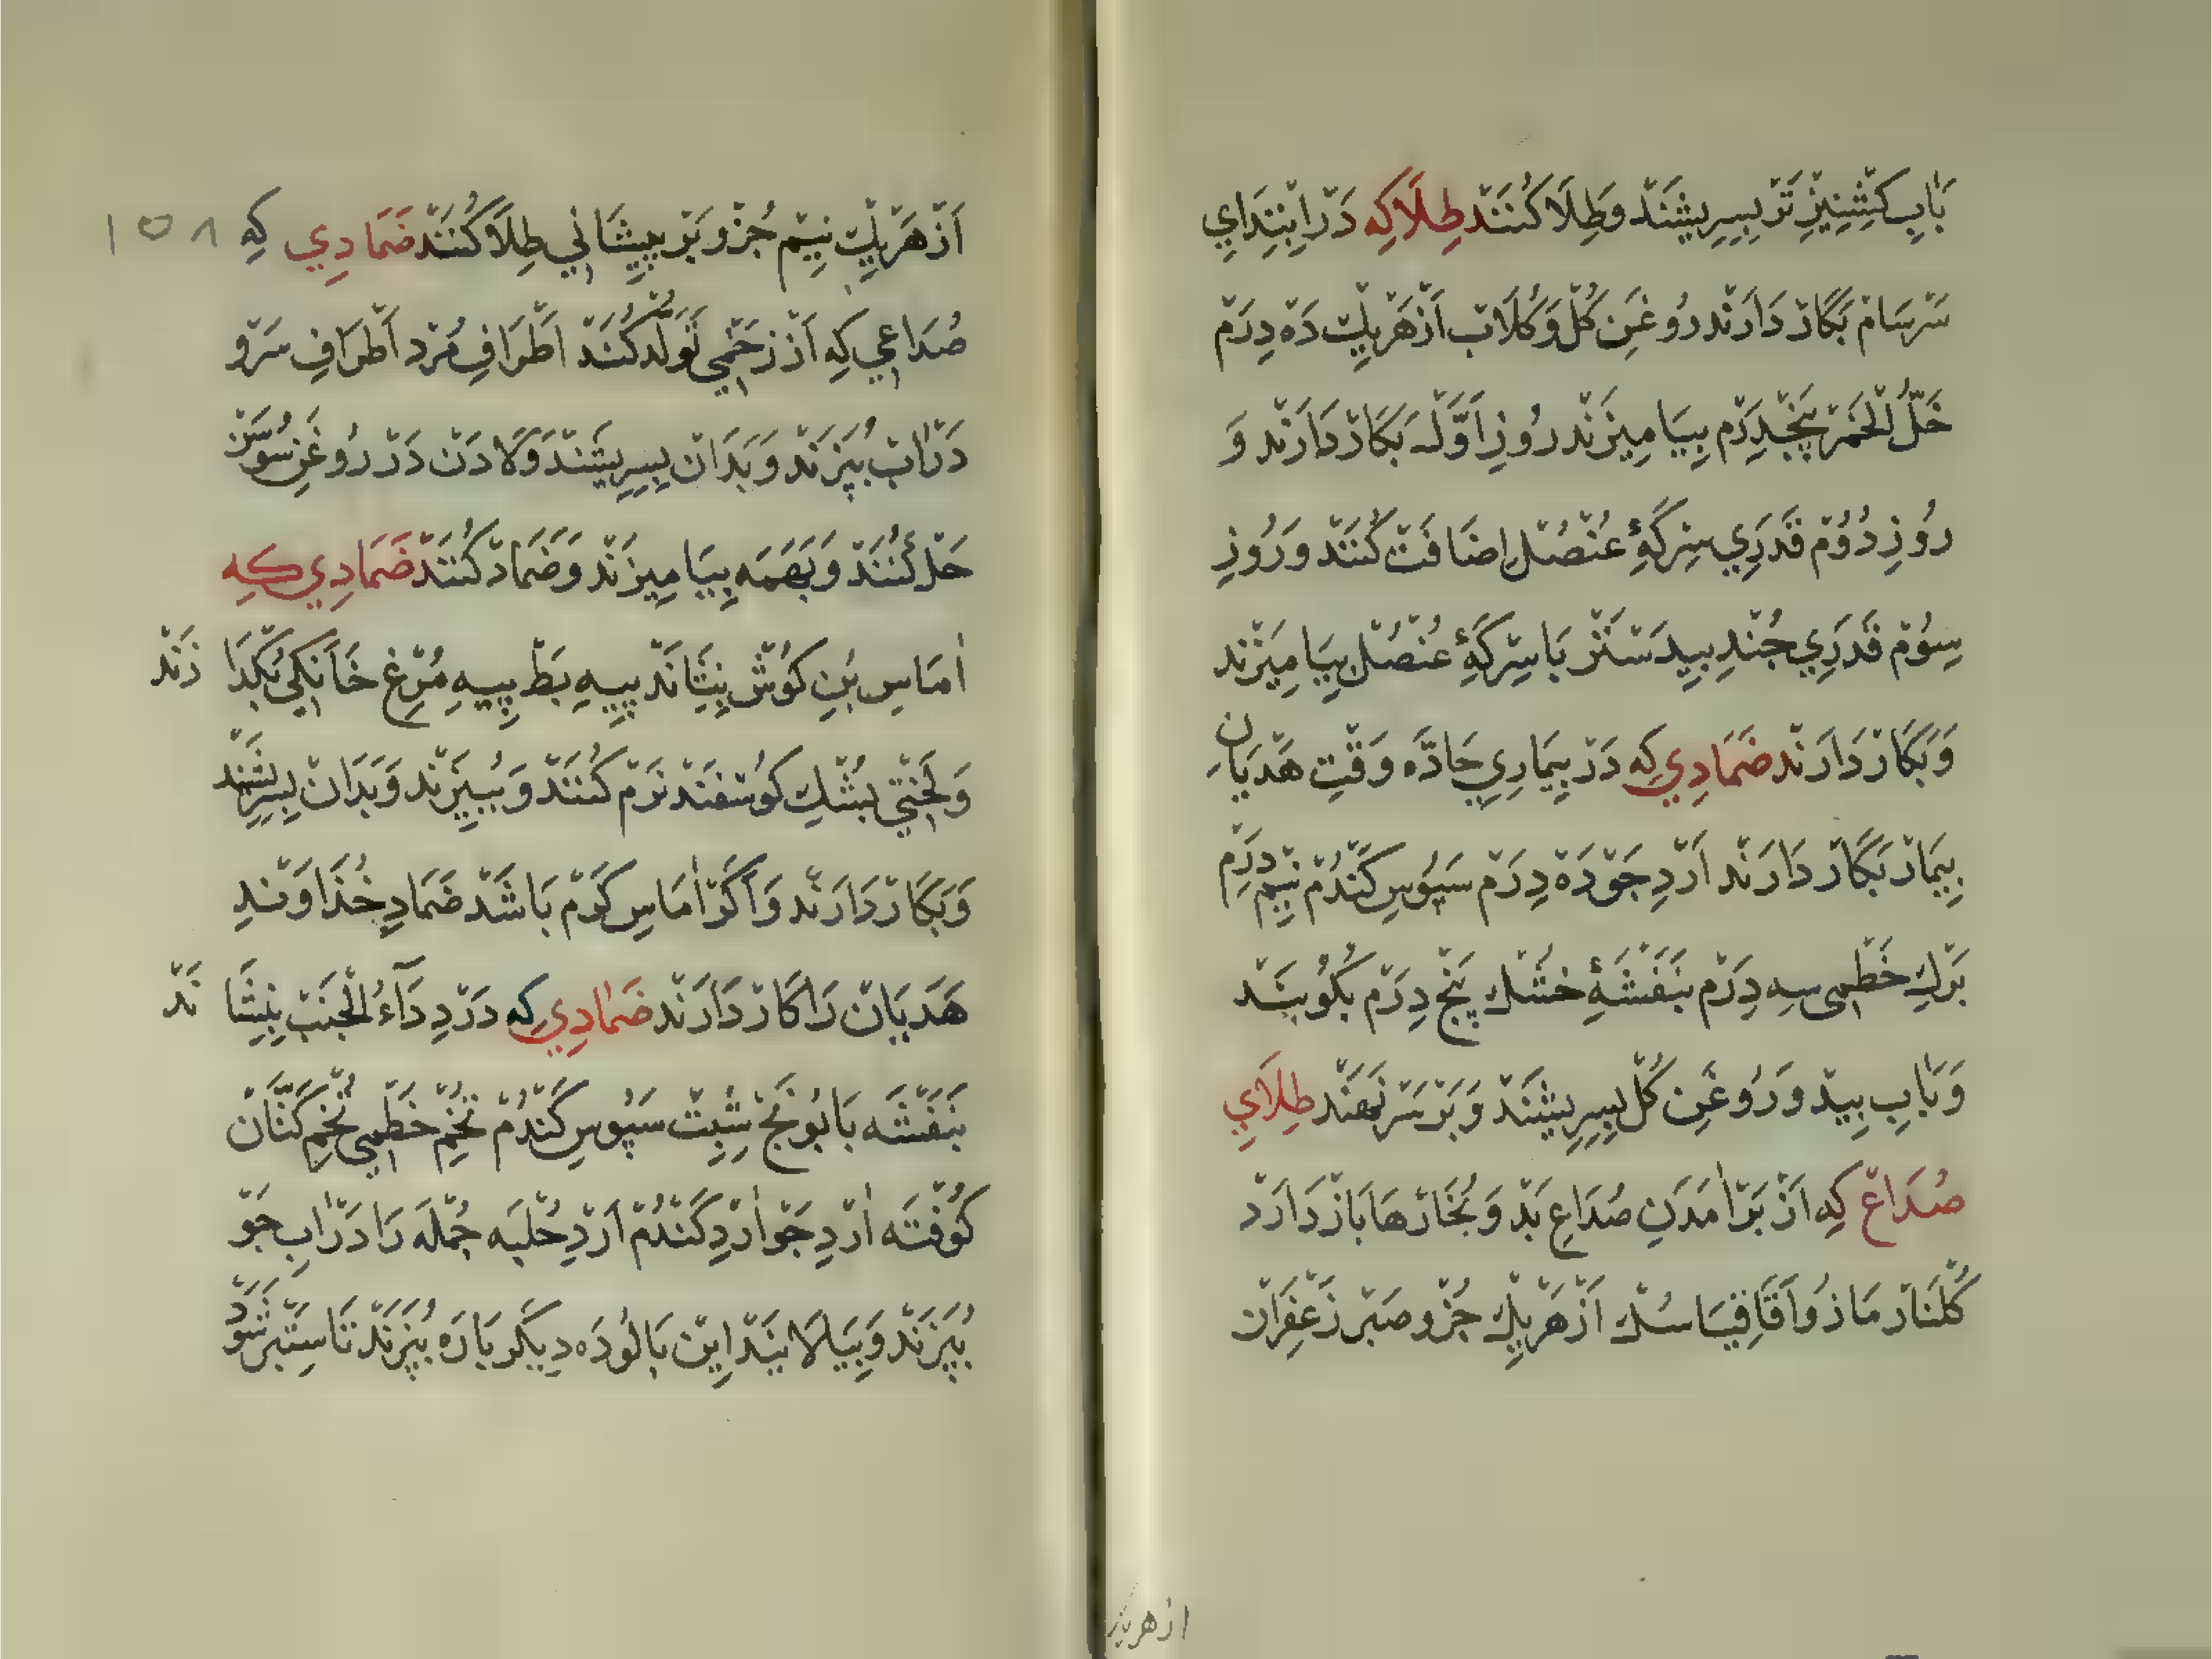 بَابِ كَشْنِيزِ تَرْ بِسِرِيشَنْدْ وَطِلَا كُنَنَدْ طِلَا كِه دَرْ اِبْتِدَايِ
سَرْسَامْ بَكَارْ دَارَنْد رُوغَنِ كُلْ وَكُلَابْ اَزْهَرْيِكْ دَه دِرَمْ
خَلُّ الْخَمَرْ پَنْجْدِرَمْ بِيَامِيزَنْد رُوزِ اَوَّلْ بَكَارْ دَارَنْد وَ
رُوزِ دُوُمْ قَدَرِي سِرْكَهٔ عُنْصُلْ اِضَافَتْ كُنَنْد وَرُوزِ
سِوُمْ قَدَرِي جُنْدِ بِيدَسْتَرْ بَا سِرْكَهٔ عُنْصُلْ بِيَامِيَزْند
وَبَكَارْ دَارَنْد ضَمَادِي كِه دَرْ بِيمَارِي حَادَّه وَقْتِ هَذَيَانِ
بِيمَارْ بَكَارْ دَارَنْد اَرْدِ جَوْ دَه دِرَمْ سَپُوسِ كَنْدُمْ نِيمْ دِرَمْ
بَرْكِ خَطْمِی سِه دِرَمْ بَنَفْشَهٔ خُشْك پَنْج دِرَمْ بَكُوبَنْد
وَبَابِ بِيدْ وَرُوغَنِ كُلْ بِسِرِيشَنْدْ وَبَرْ سَرْ نَهَنْد طِلَايِ
صُدَاعْ كِه اَزْ بَرْاٰمَدَنِ صُدَاعِ بَدْ وَبُخَارْهَا بَازْ دَارَدْ
كُلْنَارْ مَازُو اَقَاقِيَا سُكْ اَزْهَرْيِكْ جُزْو صَبَرْ زَعْفَرَانْ
از هریک
١٥٨
اَزْهَرْيِكْ نِيمْ جُزْو بَرْ پِيشَانِي طِلَا كُنَنْد ضَمَادِي كِه
صُدَاعِي كِه اَزْ زَخْمِي تَوَلُّدْ كُنَنَدْ اَطْرَافِ مُرْد اَطْرَافِ سَرْو
دَرْاٰبْ بُپَزَنْد وَبَدَانْ بِسِرِيشَنْدْ وَلَادَنْ دَرْ رُوغَنِ سُوسَنْ
حَلْ كُنَنَدْ وَبَهَمَه بِيَامِيزَنْد وَضَمَادْ كُنَنْدْ ضَمَادِي كِه
اٰمَاسِ بُنِ كُوشْ بِنِشَانَدْ پِيهِ بَطْ پِيهِ مُرْغِ خَانَكِي بُكْدَازَنْد
وَلَخْتِي پُشْكِ كُوسْفَنْد نَرْمْ كُنَنَدْ وَبِبِيزَنْد وَبَدَانْ بِسِرِيشَنْد
وَبَكَارْ دَارَنْد وَاَكَرْ اٰمَاسِ كَرْمْ بَاشَدْ ضَمَادِ خُذَاوَنْدِ
هَذَيَانْ رَا كَارْ دَارَنْد ضَمَادِي كِه دَرْدِ دَآءُ الْجَنَبْ بِنِشَانَدْ
بَنَفْشَه بَابُونَجْ شِبِتْ سَپُوسِ كَنْدُمْ تُخْمِ خَطْمِي تُخْمِ كَتَّانْ
كُوفْتَه اٰرْدِ جَوْ اٰرْدِ كَنْدُمْ اَرْدِ حُلْبَه جُمْلَه رَا دَرْاٰبِ جَوْ
بُپَزَنْد وَبِيَالَايَنْد اِينْ پَالُودَه دِيكَر بَارَه بُپَزَنْد تَا سِتَبَرْ شَوَدْ